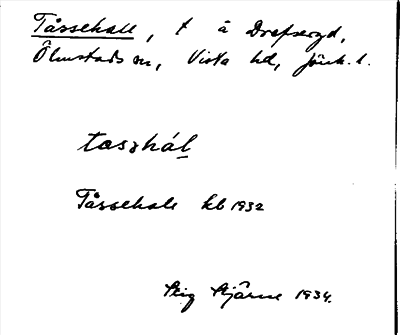 Tåssehall, t å Drefseryd,
Ölmstads sn, Vista hd, Jönk. l.
tasshál
Tåssehale kb 1932
Stig Stjärne 1934.